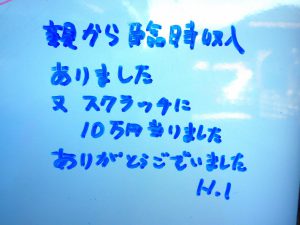 親から臨時収入
ありました
又 スクラッチに
10万円当りました
ありがとうございました
H.I